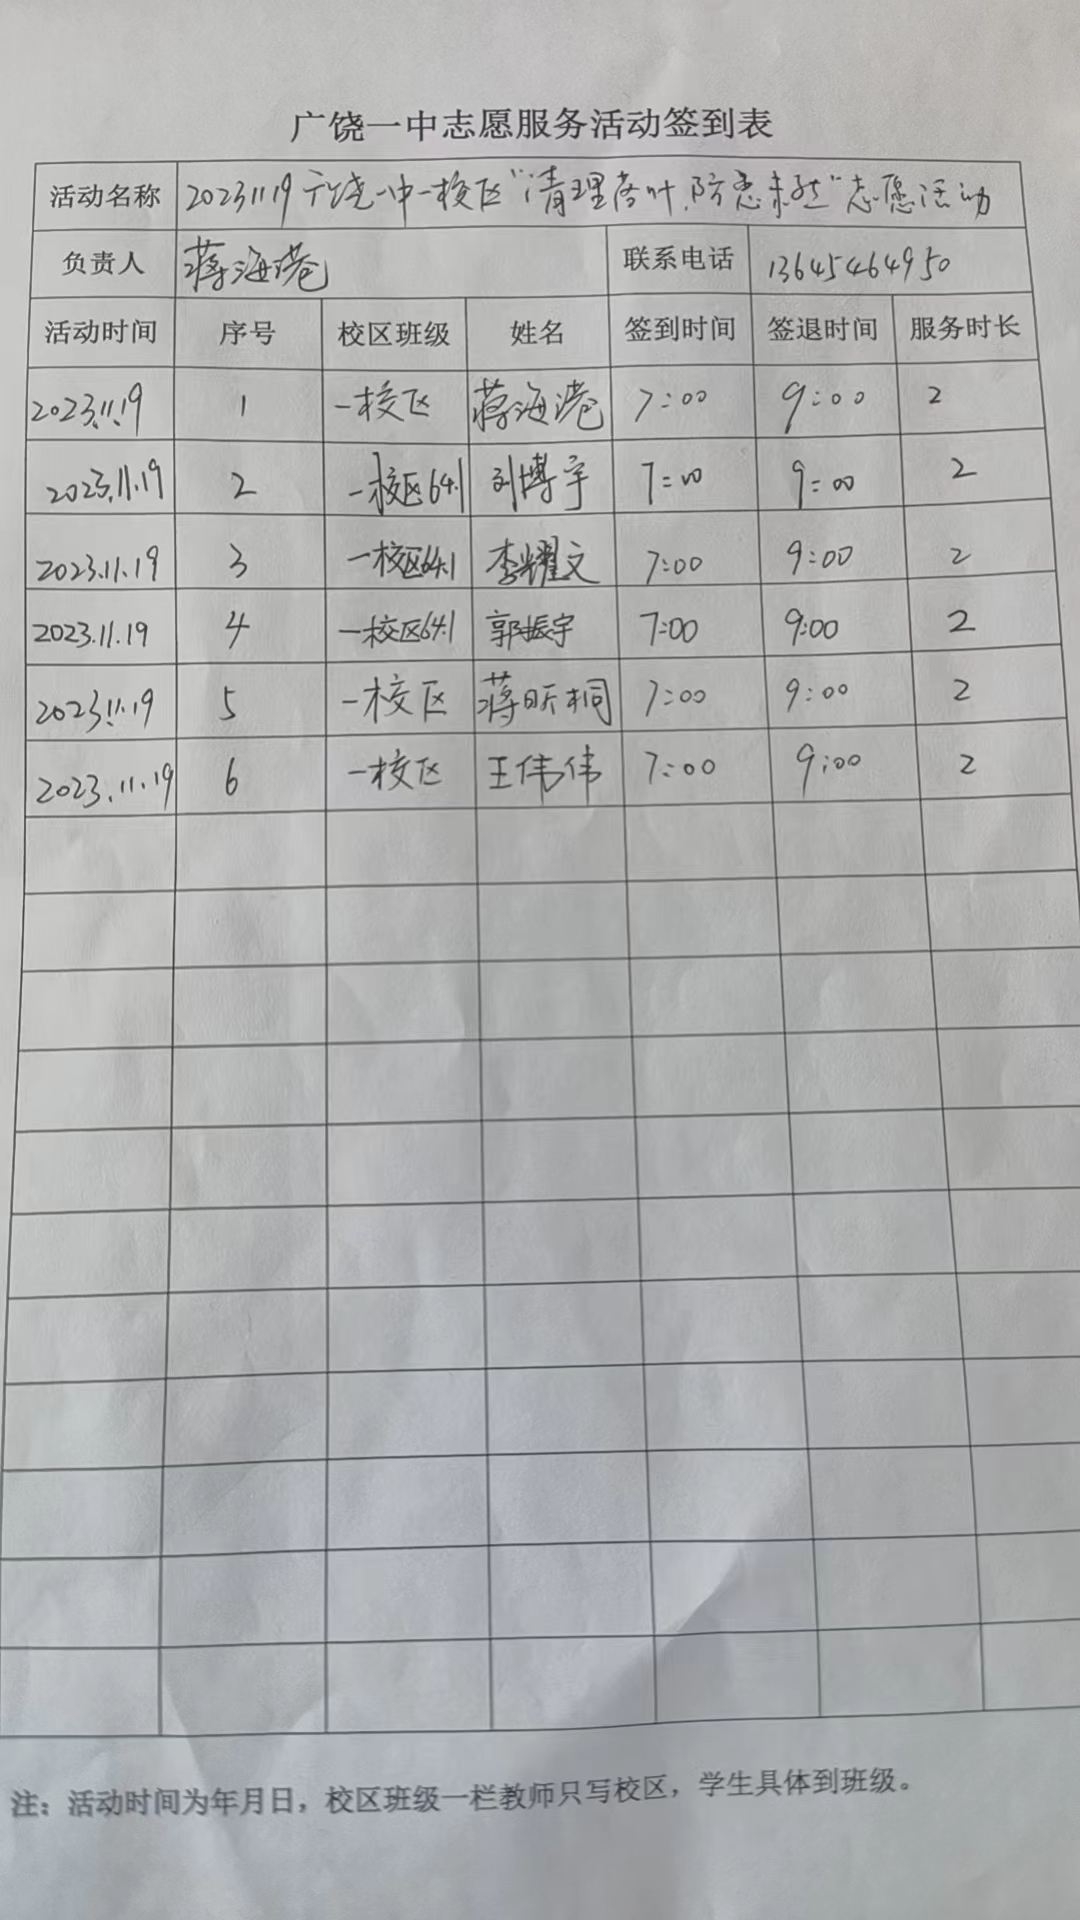 广饶一中志愿服务活动签到表
活动名称 20231119 广饶一中一校区"清理落叶,防患未然"志愿活动
负责人 蒋海港 联系电话 13645464950
活动时间 序号 校区班级 姓名 签到时间 签退时间 服务时长
2023.11.19 1 一校区 蒋海港 7:00 9:00 2
2023.11.19 2 一校区64.1 刘博宇 7:00 9:00 2
2023.11.19 3 一校区64.1 李耀文 7:00 9:00 2
2023.11.19 4 一校区64.1 郭振宇 7:00 9:00 2
2023.11.19 5 一校区 蒋昕桐 7:00 9:00 2
2023.11.19 6 一校区 王伟伟 7:00 9:00 2
注：活动时间为年月日，校区班级一栏教师只写校区，学生具体到班级。